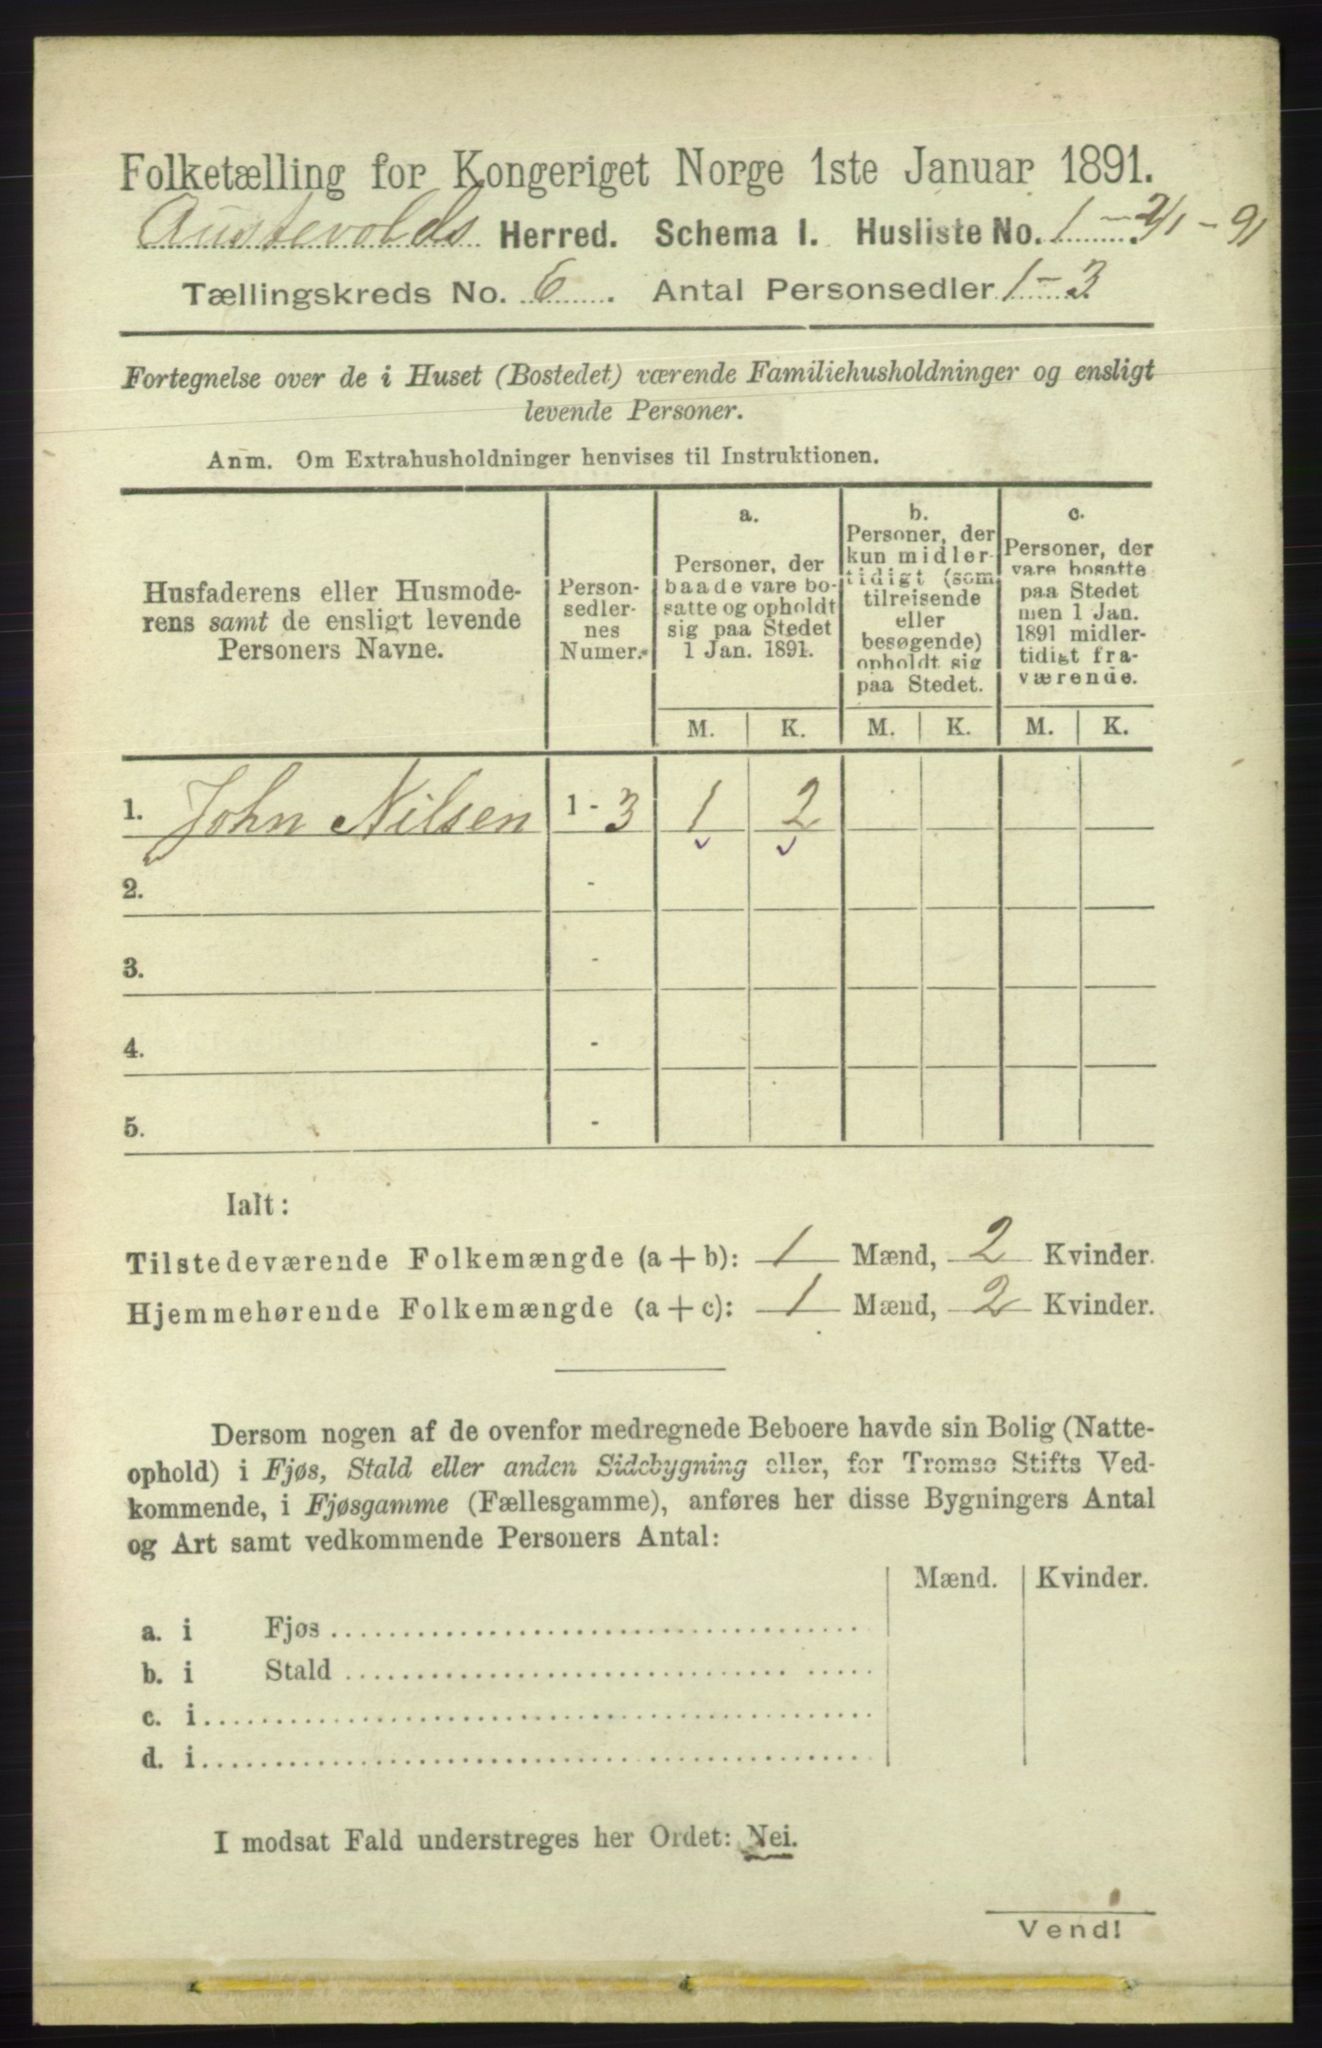 Folketælling for Kongeriget Norge 1ste Januar 1891.
Austevolds Herred. Schema I. Husliste No. 1 - 2/1 - 91
Tællingskreds No. 6. Antal Personsedler 1 - 3
Fortegnelse over de i Huset (Bostedet) værende Familiehusholdninger og ensligt
levende Personer.
Anm. Om Extrahusholdninger henvises til Instruktionen.
Husfaderens eller Husmode-
rens samt de ensligt levende
Personers Navne.
Person-
sedler-
nes
Numer.
a.
Personer, der
baade vare bo-
satte og opholdt
sig paa Stedet
1 Jan. 1891.
b.
Personer, der
kun midler-
tidigt (som
tilreisende
eller
besøgende)
opholdt sig
paa Stedet.
c.
Personer, der
vare bosatte
paa Stedet
men 1 Jan.
1891 midler-
tidigt fra-
værende.
M. K. M. K. M. K.
1. John Nilsen 1 - 3 1 2
2. -
3. -
4. -
5. -
Ialt:
Tilstedeværende Folkemængde (a + b): 1 Mænd, 2 Kvinder.
Hjemmehørende Folkemængde (a + c): 1 Mænd, 2 Kvinder.
Dersom nogen af de ovenfor medregnede Beboere havde sin Bolig (Natte-
ophold) i Fjøs, Stald eller anden Sidebygning eller, for Tromsø Stifts Ved-
kommende, i Fjøsgamme (Fællesgamme), anføres her disse Bygningers Antal
og Art samt vedkommende Personers Antal:
Mænd. Kvinder.
a. i Fjøs
b. i Stald
c. i
d. i
I modsat Fald understreges her Ordet: Nei.
Vend!